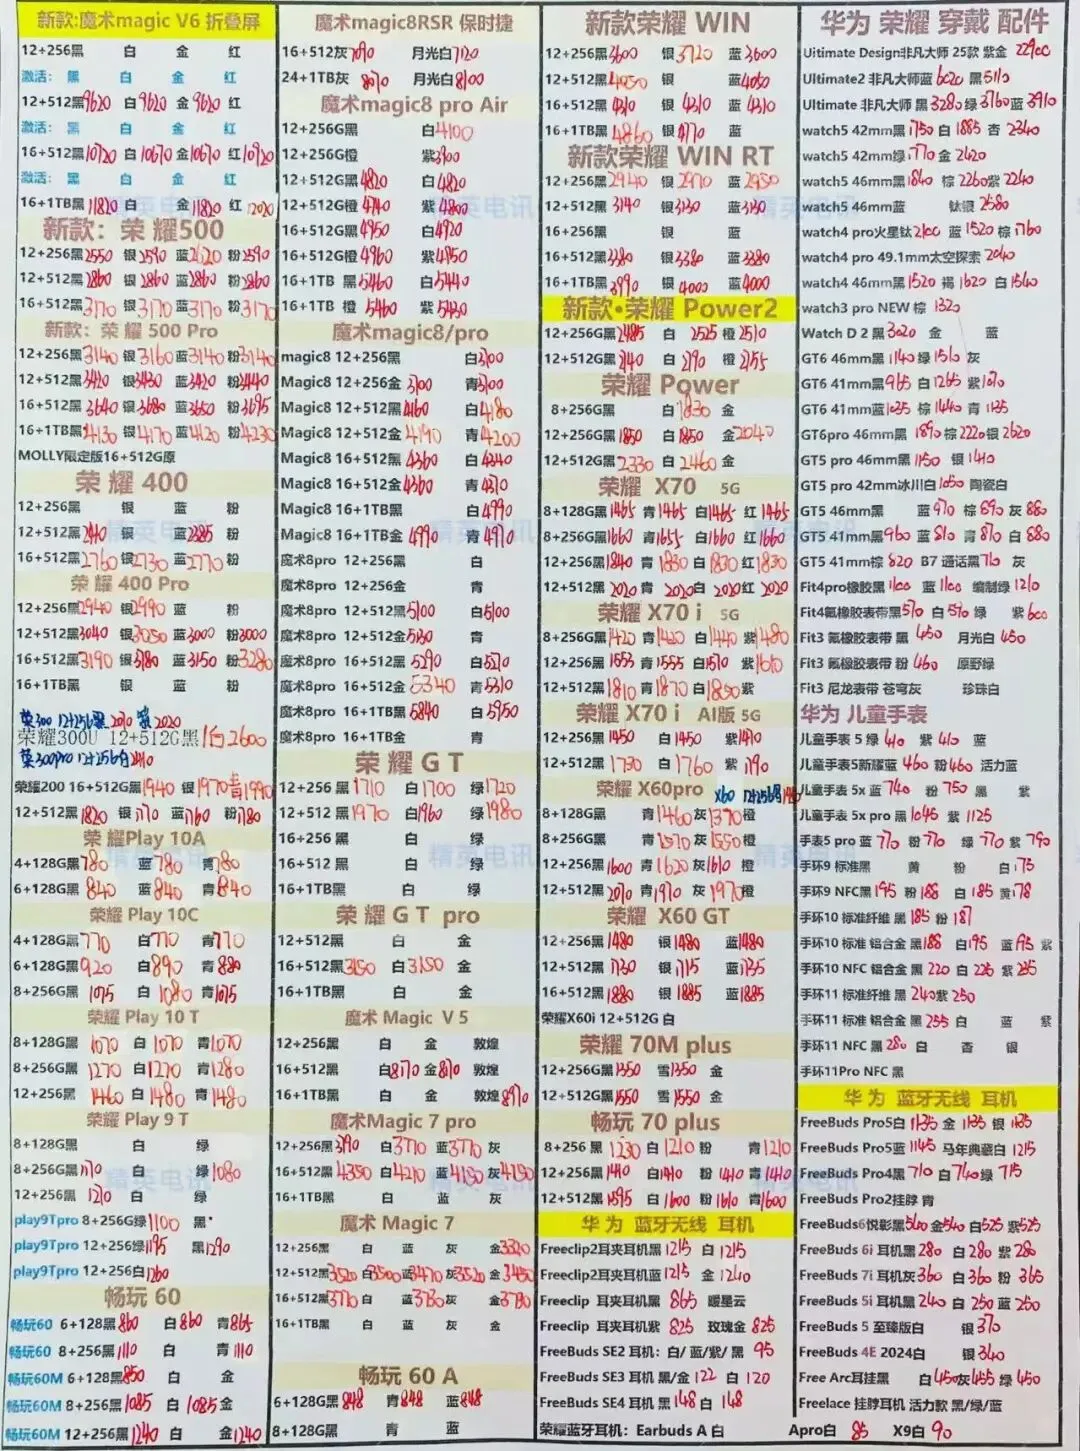 新款:魔术magic V6 折叠屏
12+256黑 白 金 红
激活: 黑 白 金 红
12+512黑9620 白9620 金9620 红
激活: 黑 白 金 红
16+512黑10720 白10670 金10670 红10920
激活: 黑 白 金 红
16+1TB黑11820 白 金11820 红12020
新款: 荣耀500
12+256黑2550 银2590 蓝2620 粉2590
12+512黑2860 银2860 蓝2860 粉2860
16+512黑3170 银3170 蓝3170 粉3170
新款: 荣耀 500 Pro
12+256黑3140 银3160 蓝3140 粉3140
12+512黑3420 银3430 蓝3420 粉3440
16+512黑3640 银3680 蓝3650 粉3695
16+1TB黑4130 银4170 蓝4120 粉4230
MOLLY限定版16+512G原
荣耀 400
12+256黑 银 蓝 粉
12+512黑2440 银 蓝2385 粉
16+512黑2760 银2730 蓝2770 粉
荣耀 400 Pro
12+256黑2940 银2990 蓝 粉
12+512黑3040 银3050 蓝3000 粉3000
16+512黑3190 银3180 蓝3150 粉3280
16+1TB黑 银 蓝 粉
荣300 12+256黑2010 紫2020
荣耀300U 12+512G黑 2600
荣300pro 12+256白2410
荣耀200 16+512G黑1940 银1970 青1990
12+512黑1820 银1770 蓝1760 粉1780
荣耀Play 10A
4+128G黑780 蓝780 青780
6+128G黑840 蓝840 青840
荣耀 Play 10C
4+128G黑770 白770 青770
6+128G黑920 白890 青880
8+256G黑 1075 白1080 青1075
荣耀 Play 10 T
8+128G黑 1070 白1070 青1070
8+256G黑 1270 白1270 青1280
12+256黑 1460 白1480 青1480
荣耀 Play 9 T
8+128G黑 白 绿
8+256G黑1170 白 绿1080
12+256黑 1210 白 绿
play9Tpro 8+256G绿1100 黑
play9Tpro 12+256绿1195 黑1290
play9Tpro 12+256白1260
畅玩 60
畅玩60 6+128黑860 白860 青865
畅玩60 8+256黑1110 白 青1110
畅玩60M 6+128黑850 白 金
畅玩60M 8+256黑1085 白1085 金
畅玩60M 12+256黑1240 白 金1240
魔术magic8RSR 保时捷
16+512灰7090 月光白7120
24+1TB灰 8070 月光白8100
魔术magic8 pro Air
12+256G黑 白4100
12+256G橙 紫3900
12+512G黑4820 白4820
12+512G橙4740 紫4800
16+512G黑4950 白4920
16+512G橙4960 紫4950
16+1TB 黑5460 白5440
16+1TB 橙 5460 紫5430
魔术magic8/pro
magic8 12+256黑 白3700
Magic8 12+256金 3700 青3700
Magic8 12+512黑4160 白4180
Magic8 12+512金4190 青4200
Magic8 16+512黑4360 白4340
Magic8 16+512金4360 青4370
Magic8 16+1TB黑 白4990
Magic8 16+1TB金 4990 青4970
魔术8pro 12+256黑 白
魔术8pro 12+256金 青
魔术8pro 12+512黑5100 白5100
魔术8pro 12+512金5130 青
魔术8pro 16+512黑5290 白5270
魔术8pro 16+512金5340 青5310
魔术8pro 16+1TB黑5840 白5950
魔术8pro 16+1TB金 青
荣耀 G T
12+256 黑1710 白1700 绿1720
12+512 黑1970 白1960 绿1980
16+256 黑 白 绿
16+512 黑 白 绿
16+1TB黑 白 绿
荣耀 G T pro
12+512黑 白 金
16+512黑3150 白3150 金
16+1TB黑 白 金
魔术 Magic V 5
12+256黑 白 金 敦煌
16+512黑 白8170 金8170 敦煌
16+1TB黑 白 金 敦煌8970
魔术Magic 7 pro
12+256黑3790 白3770 蓝3770 灰
16+512黑4350 白4210 蓝4150 灰4250
16+1TB黑 白 蓝 灰
魔术 Magic 7
12+256黑 白 蓝 灰 金3320
12+512黑3520 白3500 蓝3470 灰3520 金3450
16+512黑3770 白 蓝3730 灰 金3730
16+1TB黑 白 蓝 灰 金
畅玩 60 A
6+128G黑 848 青848 蓝848
8+128G黑 青 蓝
新款荣耀 WIN
12+256黑3600 银3720 蓝3600
12+512黑4050 银 蓝4050
16+512黑4310 银4310 蓝4310
16+1TB黑4860 银4770 蓝
新款荣耀 WIN RT
12+256黑2940 银2970 蓝2950
12+512黑 3140 银3130 蓝3130
16+256黑 银 蓝
16+512黑3380 银3380 蓝3380
16+1TB黑3990 银4000 蓝4000
新款·荣耀 Power2
12+256G黑2485 白 2525 橙2510
12+512G黑2740 白2790 橙2755
荣耀 Power
8+256G黑 白1830 金
12+256G黑1850 白1850 金2040
12+512G黑2330 白2460 金
荣耀 X70 5G
8+128G黑1465 青1465 白1465 红1465
8+256G黑1660 青1655 白1660 红1660
12+256黑1840 青1830 白1830 红1830
12+512黑2020 青2020 白2020 红2020
荣耀 X70 i 5G
8+256G黑1420 青1420 白1440 紫1480
12+256黑 1555 青1595 白1510 紫1610
12+512黑1810 青1870 白1850 紫
荣耀 X70 i AI版 5G
12+256黑1450 白1450 紫1410
12+512黑1750 白1760 紫1790
荣耀 X60pro X60 12+256
8+128G黑 青1460 灰1390 橙
8+256G黑 青1570 灰1550 橙
12+256黑1600 青1620 灰1610 橙
12+512黑2070 青1970 灰1970 橙
荣耀 X60 GT
12+256黑1480 银1480 蓝1480
12+512黑1730 银1715 蓝1735
16+512黑1880 银1885 蓝1885
荣耀X60i 12+512G 白
荣耀 70M plus
12+256G黑1350 雪1350 金
12+512G黑1550 雪1550 金
畅玩 70 plus
8+256 黑 1230 白1210 粉 青1210
12+256黑1410 白1410 粉1410 青1410
12+512黑1595 白1600 粉1610 青1600
华为 蓝牙无线 耳机
Freeclip2耳夹耳机黑1215 白1215
Freeclip2耳夹耳机蓝1215 金1240
Freeclip 耳夹耳机黑 865 暖星云
Freeclip 耳夹耳机紫 825 玫瑰金825
FreeBuds SE2 耳机: 白/蓝/紫/黑 95
FreeBuds SE3 耳机 黑/金122 白120
FreeBuds SE4 耳机 黑148 白148
荣耀蓝牙耳机: Earbuds A 白 Apro白 85 X9白 90
华为 荣耀 穿戴 配件
Uitimate Design非凡大师 25款 紫金 22900
Ultimate2 非凡大师蓝6020 黑5110
Ultimate 非凡大师 黑3280 绿3760 蓝3910
watch5 42mm黑1750 白1885 杏2340
watch5 42mm绿1770 金2420
watch5 46mm黑1840 棕2260 紫2240
watch5 46mm蓝 钛银2580
watch4 pro火星钛2100 蓝1520 棕1760
watch4 pro 49.1mm太空探索2040
watch4 46mm黑1520 褐1620 白1540
watch3 pro NEW 棕1320
Watch D 2 黑3020 金 蓝
GT6 46mm黑1140 绿1510 灰
GT6 41mm黑965 白1265 紫1070
GT6 41mm蓝1035 棕1440 青1135
GT6pro 46mm黑 1890 棕2220 银2620
GT5 pro 46mm黑1150 银1410
GT5 pro 42mm冰川白1050 陶瓷白
GT5 46mm黑 蓝970 棕890 灰880
GT5 41mm黑960 蓝810 青870 白880
GT5 41mm棕820 B7 通话黑710 灰
Fit4pro橡胶黑1100 蓝1100 编制绿1210
Fit4氟橡胶表带黑570 白570 绿 紫600
Fit3 氟橡胶表带 黑450 月光白450
Fit3 氟橡胶表带 粉460 原野绿
Fit3 尼龙表带 苍穹灰 珍珠白
华为 儿童手表
儿童手表 5 绿410 紫410 蓝
儿童手表5新耀蓝460 粉460 活力蓝
儿童手表 5x 蓝740 粉750 黑 紫
儿童手表 5x pro 黑1045 紫1125
手表5 pro 蓝770 粉770 绿770 紫790
手环9 标准黑 黄 粉 白175
手环9 NFC黑195 粉188 白185 黄178
手环10 标准纤维 黑185 粉187
手环10 标准 铝合金 黑188 白195 蓝195 紫
手环10 NFC 铝合金 黑220 白225 紫235
手环11 标准纤维 黑240 紫250
手环11 标准 铝合金 黑255 白 蓝 紫
手环11 NFC 黑280 白 杏 银
手环11Pro NFC 黑
华为 蓝牙无线 耳机
FreeBuds Pro5白1135 金1135 银1135
FreeBuds Pro5蓝1145 马年典藏白1215
FreeBuds Pro4黑710 白740 绿715
FreeBuds Pro2挂脖 青
FreeBuds6悦彰黑540 金540 白525 紫525
FreeBuds 6i 耳机黑280 白280 紫280
FreeBuds 7i 耳机灰360 白360 粉365
FreeBuds 5i 耳机黑240 白250 蓝250
FreeBuds 5 至臻版白 银370
FreeBuds 4E 2024白 银340
Free Arc耳挂黑 白450 灰455 绿450
Freelace 挂脖耳机 活力款 黑/绿/蓝
精英电讯